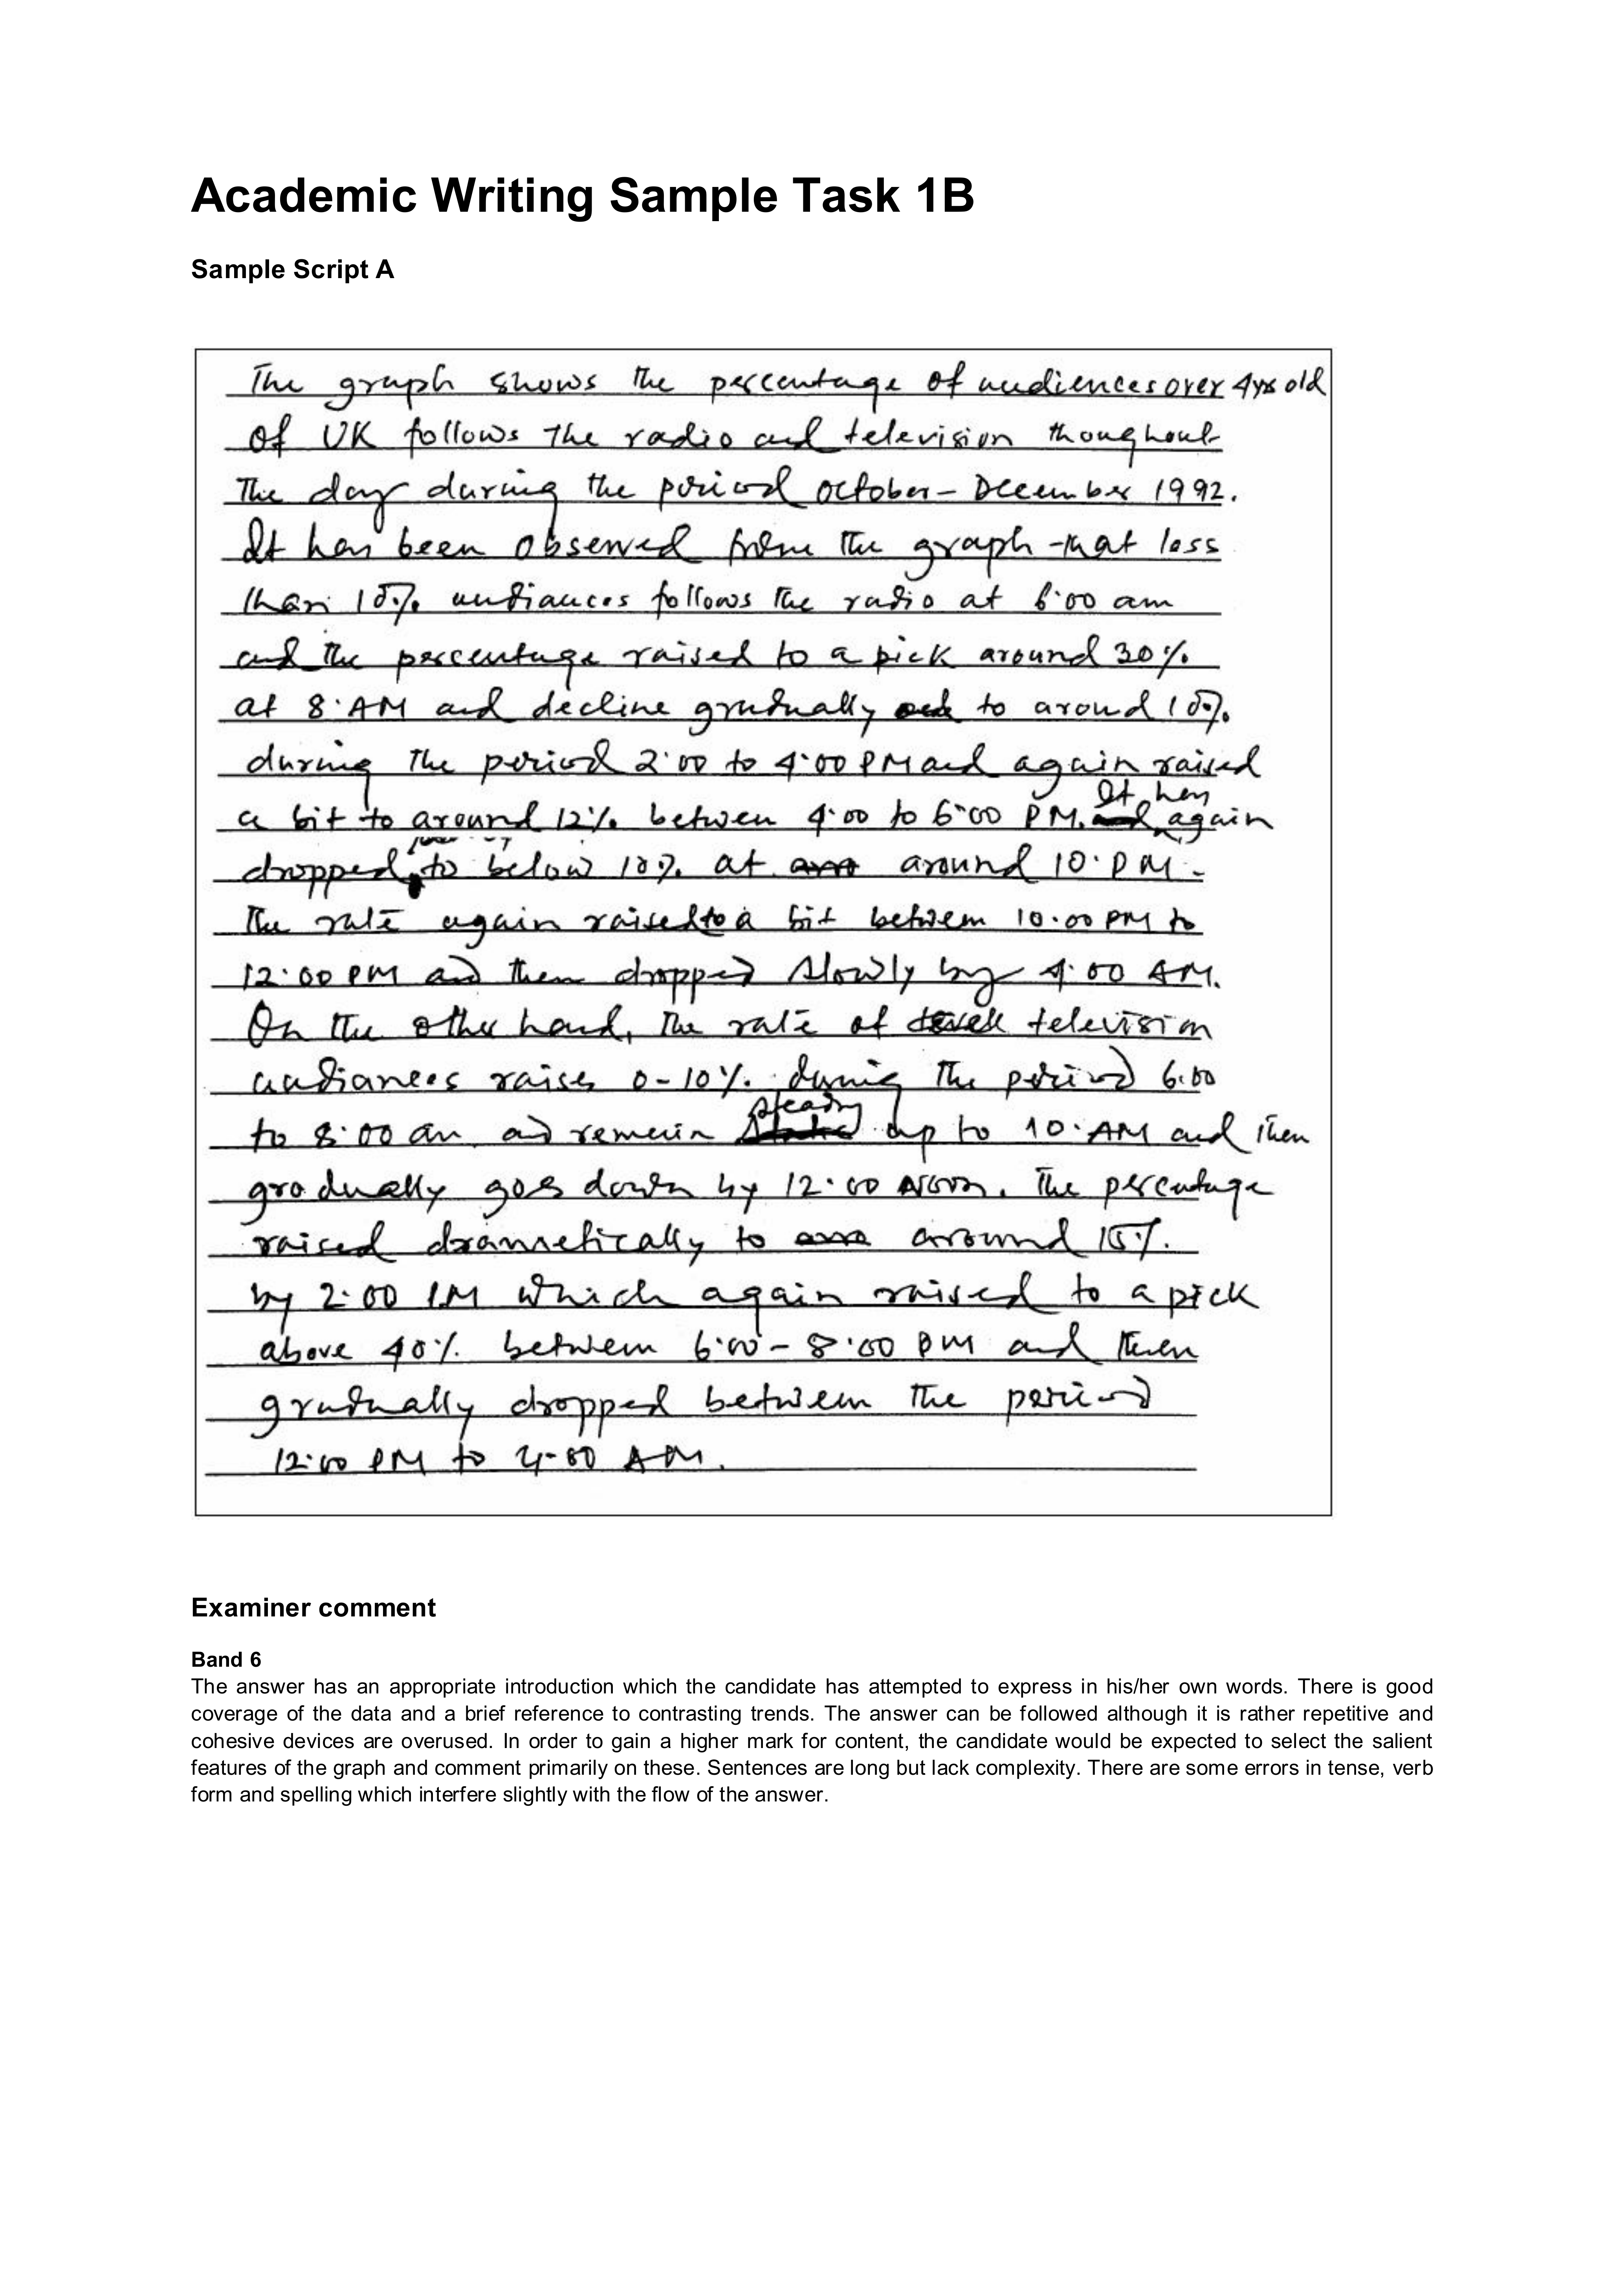 Academic Writing Sample Task 1B
Sample Script A
The graph shows the percentage of audiences over 4yrs old
of UK follows the radio and television thoughout
the day during the period october – December 1992.
It has been observed from the graph that less
than 10% audiances follows the radio at 6:00 am
and the percentage raised to a pick around 30%
at 8·AM and decline gradually to around 10%
during the period 2:00 to 4:00 PM and again raised
a bit to around 12% between 4:00 to 6:00 PM. It then again
dropped to below 10% at around 10·PM.
The rate again raised to a bit between 10.00 PM to
12:00 PM and then dropped slowly by 4:00 AM.
On the other hand, the rate of television
audiances raises 0–10% during the period 6.00
to 8:00 am and remain steady up to 10·AM and then
gradually goes down by 12.00 noon. The percentage
raised dramnetically to around 15%
by 2:00 PM which again raised to a pick
above 40% between 6:00 – 8:00 PM and then
gradually dropped between the period
12:00 PM to 4:00 AM.
Examiner comment
Band 6
The answer has an appropriate introduction which the candidate has attempted to express in his/her own words. There is good
coverage of the data and a brief reference to contrasting trends. The answer can be followed although it is rather repetitive and
cohesive devices are overused. In order to gain a higher mark for content, the candidate would be expected to select the salient
features of the graph and comment primarily on these. Sentences are long but lack complexity. There are some errors in tense, verb
form and spelling which interfere slightly with the flow of the answer.